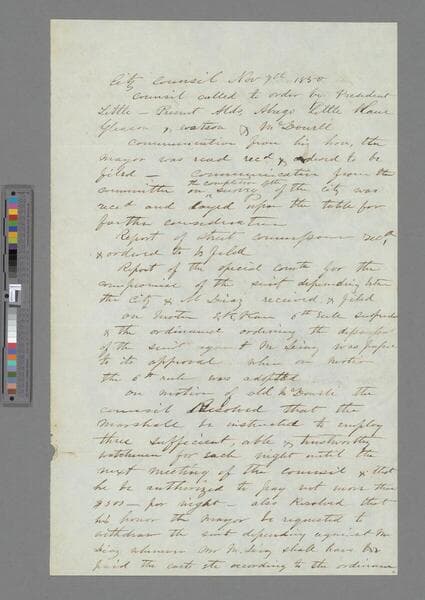 City Council Nov 7th 1850
Council called to order by President
Little – Present Alds, Abrego Little Kane
Gleason & Watson & McDowell
Communication from his hon, the
mayor was read recd & ordered to be
filed – Communication from the
committee on the completion of the survey of the city was
recd and layed upon the table for
further consideration
Report of street commissioner recd
& ordered to be filed
Report of the special comte for the
compromise of the suit depending betw
the City & M Diaz received & filed
on motion of Kane 6th rule suspended
& the ordinance ordering the
of the suit against M was
to its approval when on motion
the 6th rule was adopted
on motion of ald McDowell the
council Resolved that the
Marshall be instructed to employ
three sufficient, able & trustworthy
watchmen for each night until the
next meeting of the council & that
he be authorized to pay not more than
$500 – per night – also Resolved that
his honor the Mayor be requested to
withdraw the suit depending against M
whenever Mr M. shall have
paid the costs etc according to the ordinance